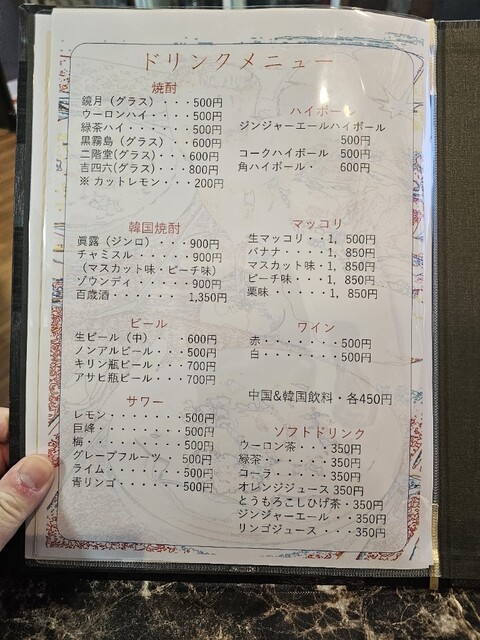 ドリンクメニュー
焼酎
鏡月（グラス）・・・500円
ウーロンハイ・・・・500円
緑茶ハイ・・・・・・500円
黒霧島（グラス）・・600円
二階堂(グラス)・・・600円
吉四六(グラス)・・・800円
※カットレモン・・・200円
ハイボール
ジンジャーエールハイボール
500円
コークハイボール 500円
角ハイボール・ 600円
韓国焼酎
眞露（ジンロ）・・・900円
チャミスル・・・・・900円
（マスカット味・ピーチ味）
ゾウンディ・・・・・900円
百歳酒・・・・・・1,350円
マッコリ
生マッコリ・・1，500円
バナナ・・・・1，850円
マスカット味・1，850円
ピーチ味・・・1，850円
栗味・・・・・1，850円
ビール
生ビール（中）・ 600円
ノンアルビール・・・500円
キリン瓶ビール・・・700円
アサヒ瓶ビール・・・700円
ワイン
赤・・・・・・500円
白・・・・・・500円
中国&韓国飲料・各450円
サワー
レモン・・・・・・・500円
巨峰・・・・・・・・500円
梅・・・・・・・・・500円
グレープフルーツ 500円
ライム・・・・・・・500円
青リンゴ・・・・・・500円
ソフトドリンク
ウーロン茶・・・350円
緑茶・・・・・・350円
コーラ・・・・・350円
オレンジジュース 350円
とうもろこしひげ茶・350円
ジンジャーエール・・350円
リンゴジュース・・・350円